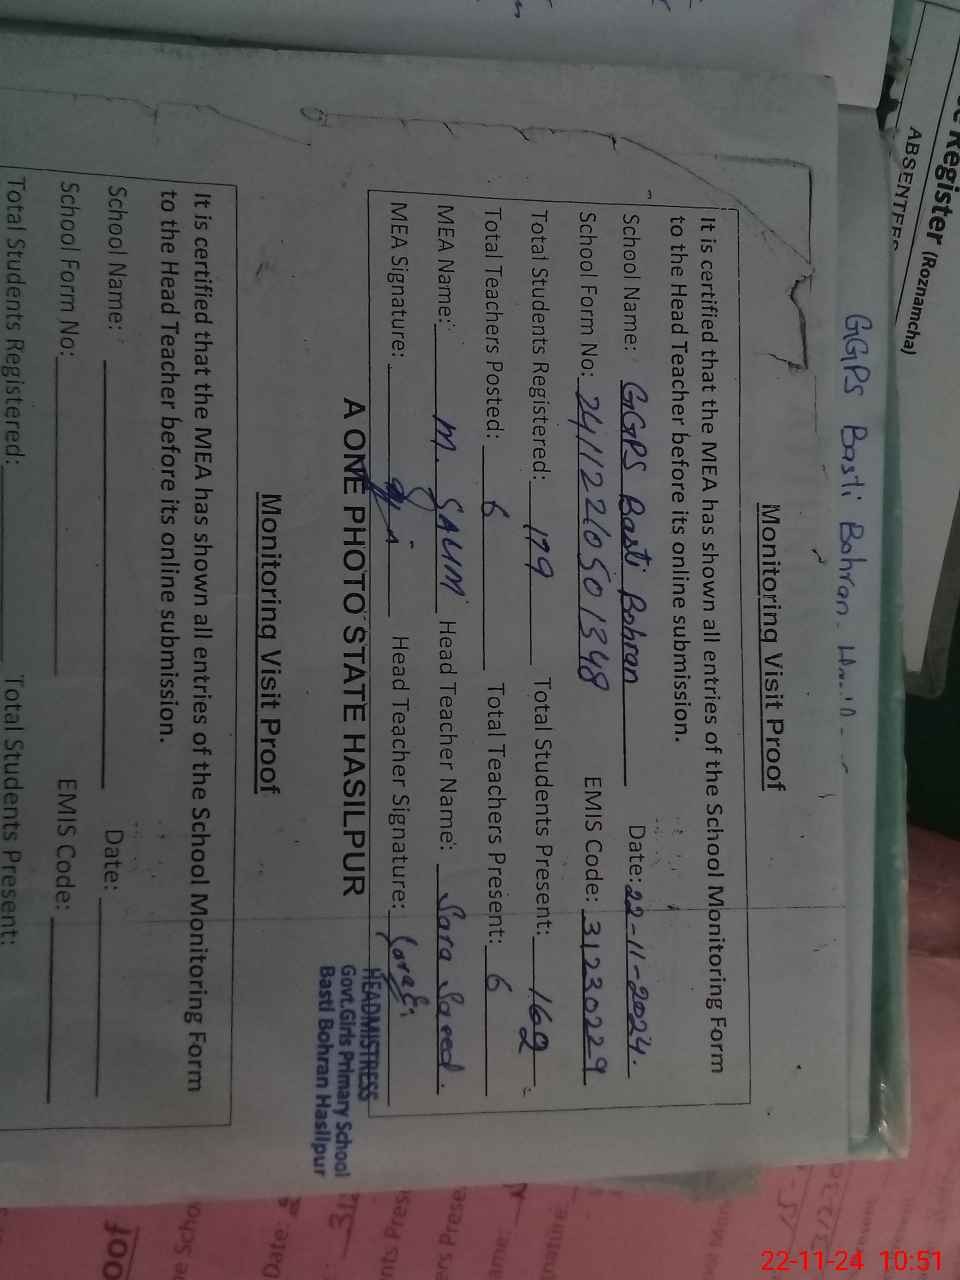 Register (Roznamcha)
ABSENTEES
GGPS Basti Bohran.
Monitoring Visit Proof
It is certified that the MEA has shown all entries of the School Monitoring Form
to the Head Teacher before its online submission.
School Name: GGPS Basti Bohran Date: 22-11-2024.
School Form No: 24112260501348 EMIS Code: 31230229
Total Students Registered: 179 Total Students Present: 162
Total Teachers Posted: 6 Total Teachers Present: 6
MEA Name: M. SALIM Head Teacher Name: Sara Saeed.
MEA Signature: Head Teacher Signature: Sara
A ONE PHOTO STATE HASILPUR
HEADMISTRESS
Govt.Girls Primary School
Basti Bohran Hasilpur
Monitoring Visit Proof
It is certified that the MEA has shown all entries of the School Monitoring Form
to the Head Teacher before its online submission.
School Name: Date:
School Form No: EMIS Code:
Total Students Registered: Total Students Present:
22-11-24 10:51